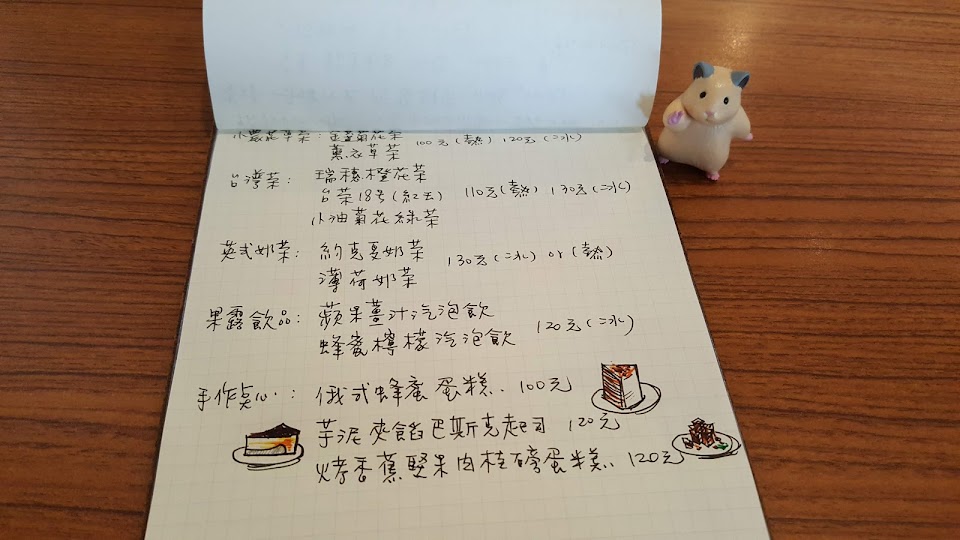 小農花草茶：金萱菊花茶 100元(熱) 120元(冰)
薰衣草茶
台灣茶：瑞穗橙花茶
台茶18号(紅玉) 110元(熱) 130元(冰)
小油菊花綠茶
英式奶茶：約克夏奶茶 130元(冰) or (熱)
薄荷奶茶
果露飲品：蘋果薑汁汽泡飲
蜂蜜檸檬汽泡飲 120元(冰)
手作點心：俄式蜂蜜蛋糕.. 100元
芋泥夾餡巴斯克起司 120元
烤香蕉堅果肉桂磅蛋糕.. 120元